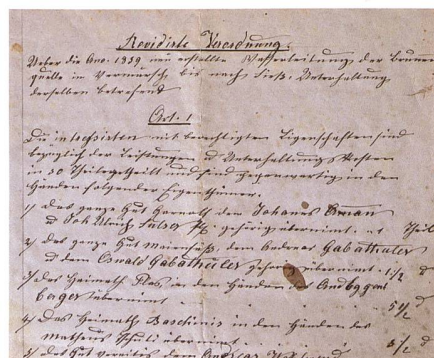 Revidirte Verordnung.
Ueber die Ano. 1859 neu erstellte Wasserleitung der Brunnen
quelle in Vermürsch bis nach Fieß. Unterhaltung
derselben betrefend
Art. 1
Die interesirten mit berechtigten Eigenschaften sind
bezüglich der Leistungen & Unterhaltungs Kosten
in 30 Theile getheilt und sind gegenwärtig in den
Händen folgender Eigenthümer.
1) Das ganze Gut dem Johanes
& Joh Ulrich Sulser gehörig übernimt. Theil
2) Das ganze Gut Maienseß, dem Andreas Gabathuler
& dem Oswald Gabathuler gehörig übernimt. 1/2 d
3) Das Heimath Plas, in den Händen des And Eggen
berger übernimt 5 1/2 d
4) Das Heimath Baschinis in den Händen des
Matheus Schuli übernimt 1/2 d
5) das Gut dem Andreas